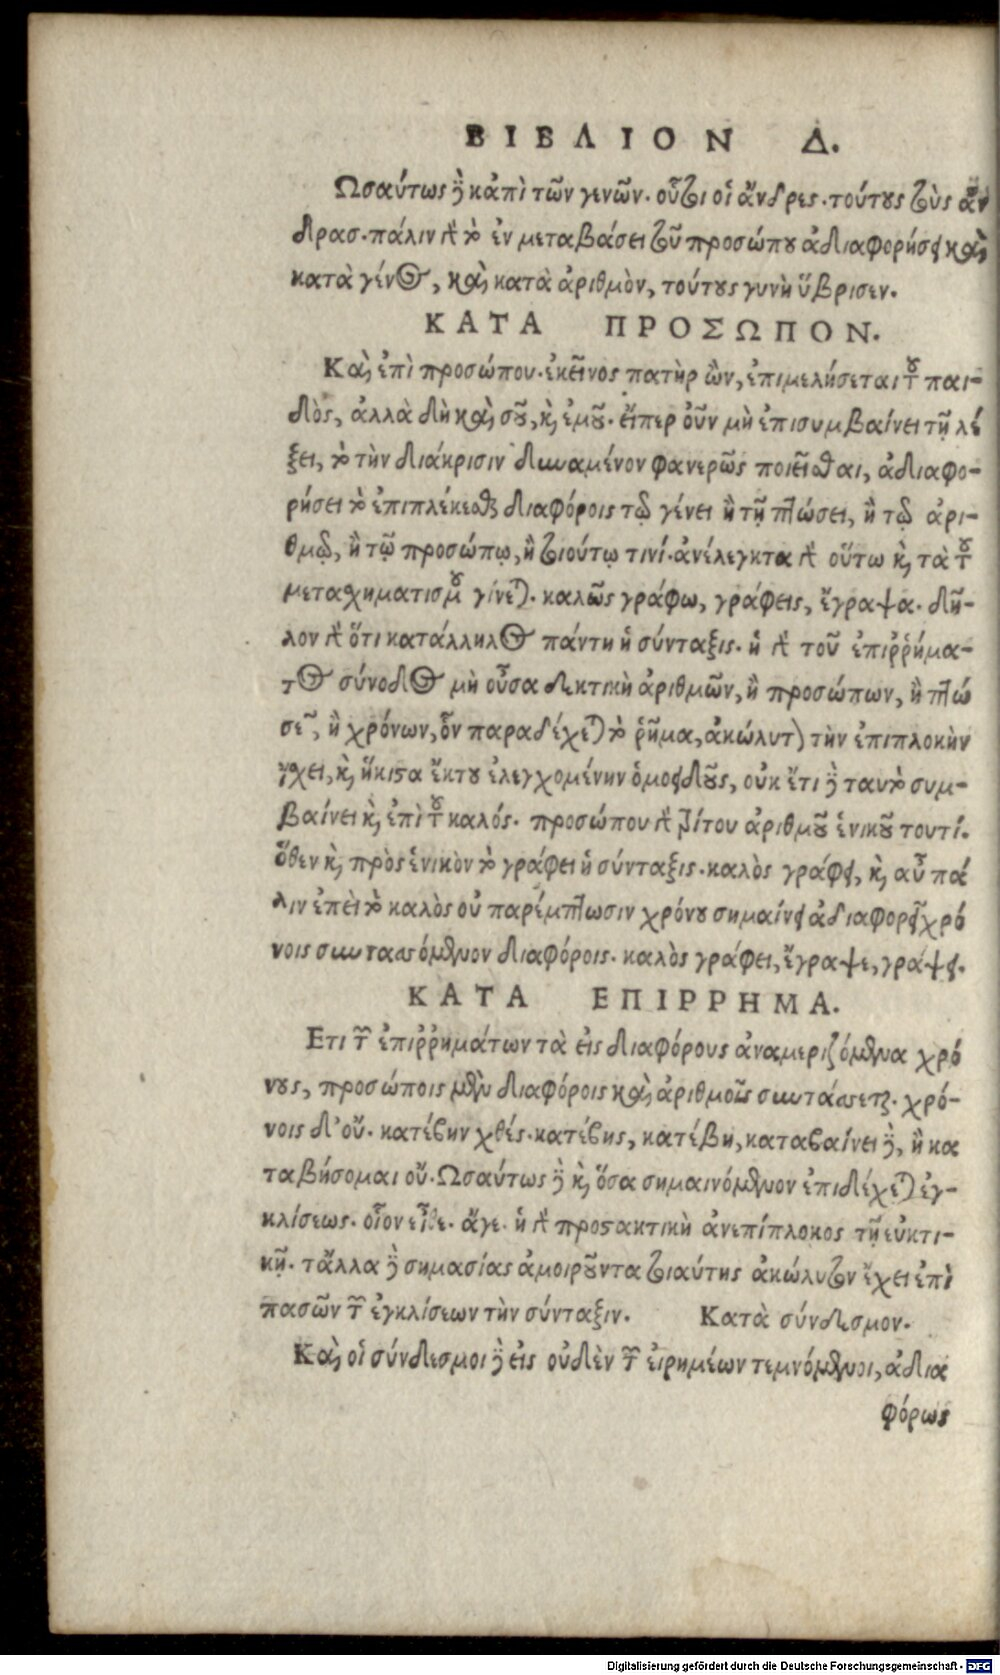 ΒΙΒΛΙΟΝ Δ.
Ωσαύτως δὲ κἀπὶ τῶν γενῶν. οὗτοι οἱ ἄνδρες. τούτους τοὺς ἄν
δρας. πάλιν γὰρ τὸ ἐν μεταβάσει τοῦ προσώπου ἀδιαφορήσει καὶ
κατὰ γένος, καὶ κατὰ ἀριθμὸν, τούτους γυνὴ ὕβρισεν.
ΚΑΤΑ ΠΡΟΣΩΠΟΝ.
Καὶ ἐπὶ προσώπου. ἐκεῖνος πατὴρ ὢν, ἐπιμελήσεται τοῦ παι-
δὸς, ἀλλὰ δὴ καὶ σοῦ, καὶ ἐμοῦ. εἴπερ οὖν μὴ ἐπισυμβαίνει τῇ λέ
ξει, τὸ τὴν διάκρισιν δυναμένον φανερῶς ποιεῖσθαι, ἀδιαφο-
ρήσει τὸ ἐπιπλέκεσθαι διαφόροις τῷ γένει ἢ τῇ πτώσει, ἢ τῷ ἀρι-
θμῷ, ἢ τῷ προσώπῳ, ἢ τοιούτῳ τινί. ἀνέλεγκτα γὰρ οὕτω καὶ τὰ τοῦ
μετασχηματισμοῦ γίνεται. καλῶς γράφω, γράφεις, ἔγραψα. δῆ-
λον γὰρ ὅτι κατάλληλος πάντη ἡ σύνταξις. ἡ γὰρ τοῦ ἐπιῤῥήμα-
τος σύνοδος μὴ οὖσα δεκτικὴ ἀριθμῶν, ἢ προσώπων, ἢ πτώ
σεων, ἢ χρόνων, ὧν παραδέχεται τὸ ῥῆμα, ἀκώλυτον τὴν ἐπιπλοκὴν
ἔχει, καὶ ἥκιστα ἐκ τοῦ ἐλεγχομένην ὁμοειδοῦς, οὐκ ἔτι δὲ ταυτὸ συμ-
βαίνει καὶ ἐπὶ τοῦ καλός. προσώπου γὰρ τρίτου ἀριθμοῦ ἑνικοῦ τουτί.
ὅθεν καὶ πρὸς ἑνικὸν τὸ γράφει ἡ σύνταξις. καλὸς γράφει, καὶ αὖ πά
λιν ἐπεὶ τὸ καλὸς οὐ παρέμπτωσιν χρόνου σημαίνει ἀδιαφορεῖ χρό
νοις συντασσόμενον διαφόροις. καλὸς γράφει, ἔγραψε, γράψει.
ΚΑΤΑ ΕΠΙΡΡΗΜΑ.
Ετι τῶν ἐπιῤῥημάτων τὰ εἰς διαφόρους ἀναμεριζόμενα χρό
νους, προσώποις μὲν διαφόροις καὶ ἀριθμοῖς συντάσσεται. χρό-
νοις δ' οὔ. κατέβην χθές. κατέβης, κατέβη, καταβαίνει δὲ, ἢ κα
ταβήσομαι οὔ. Ωσαύτως δὲ καὶ ὅσα σημαινόμενον ἐπιδέχεται ἐγ-
κλίσεως. οἷον εἴθε. ἄγε. ἡ γὰρ προστακτικὴ ἀνεπίπλοκος τῇ εὐκτι-
κῇ. τἄλλα δὲ σημασίας ἀμοιροῦντα τοιαύτης ἀκώλυτον ἔχει ἐπὶ
πασῶν τῶν ἐγκλίσεων τὴν σύνταξιν. Κατὰ σύνδεσμον.
Καὶ οἱ σύνδεσμοι δὲ εἰς οὐδὲν τῶν εἰρημέων τεμνόμενοι, ἀδια
φόρως
Digitalisierung gefördert durch die Deutsche Forschungsgemeinschaft - DFG